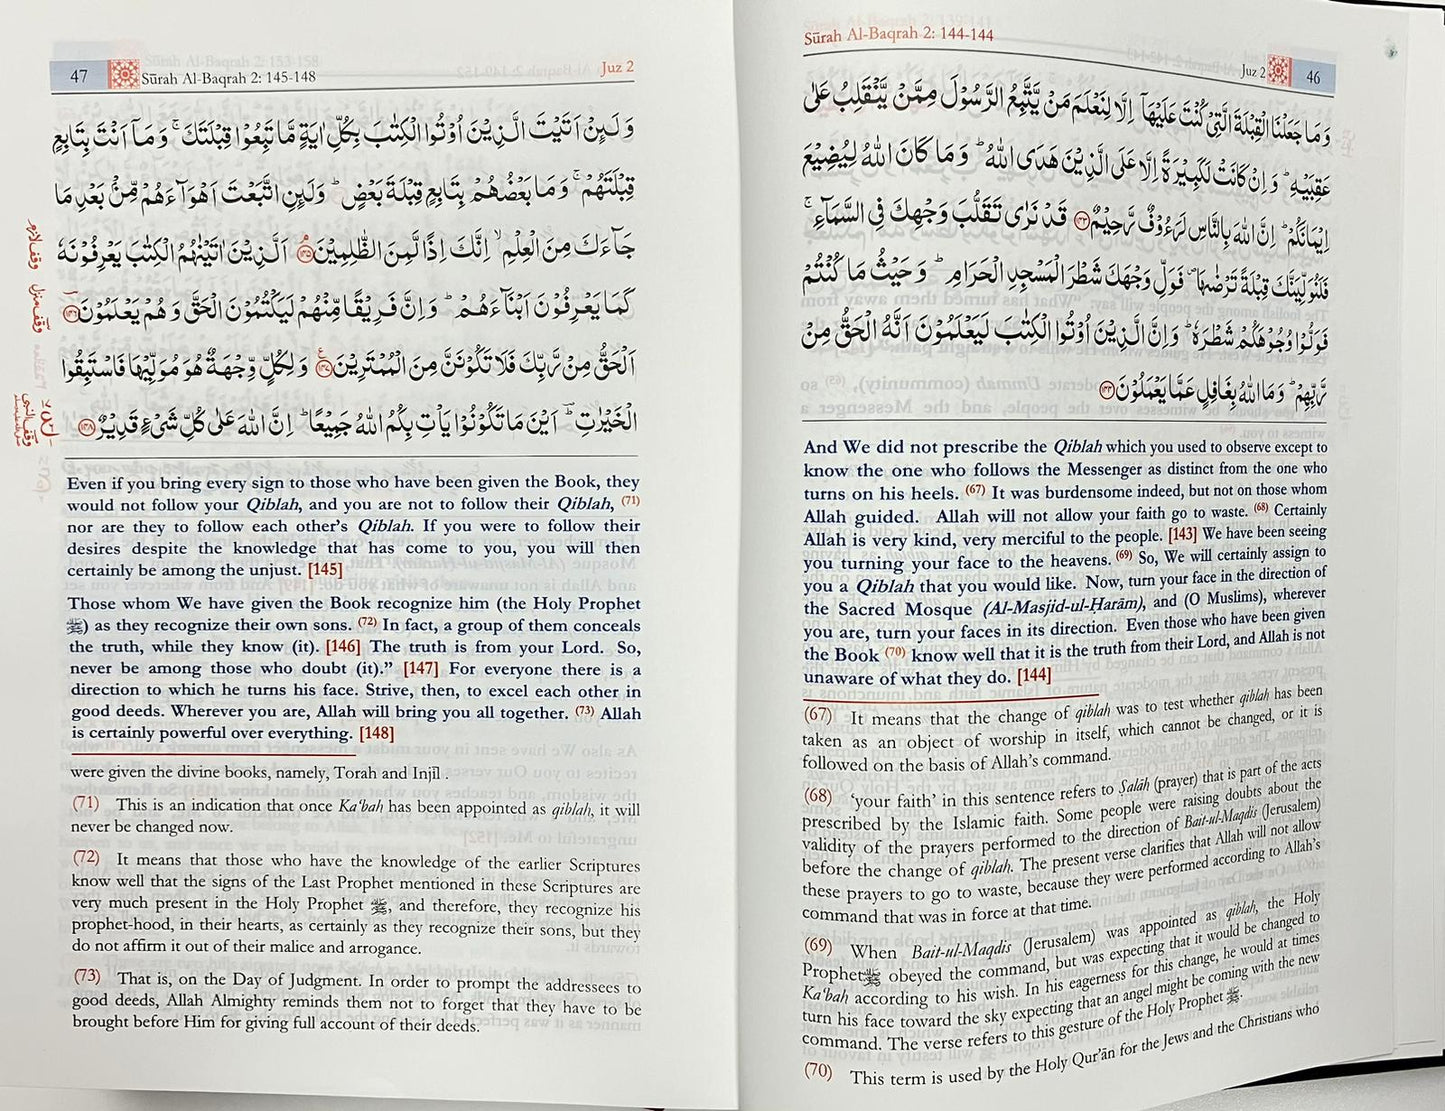 Sūrah Al-Baqrah 2: 144-144
Juz 2
46
وَمَا جَعَلْنَا الْقِبْلَةَ الَّتِيْ كُنْتَ عَلَيْهَآ اِلَّا لِنَعْلَمَ مَنْ يَّتَّبِعُ الرَّسُوْلَ مِمَّنْ يَّنْقَلِبُ عَلٰى
عَقِبَيْهِ ؕ وَ اِنْ كَانَتْ لَكَبِيْرَةً اِلَّا عَلَى الَّذِيْنَ هَدَى اللّٰهُ ؕ وَمَا كَانَ اللّٰهُ لِيُضِيْعَ
اِيْمَانَكُمْ ؕ اِنَّ اللّٰهَ بِالنَّاسِ لَرَءُوْفٌ رَّحِيْمٌ ۝۱۴۳ قَدْ نَرٰى تَقَلُّبَ وَجْهِكَ فِى السَّمَآءِ ۚ
فَلَنُوَلِّيَنَّكَ قِبْلَةً تَرْضٰىهَا ۪ فَوَلِّ وَجْهَكَ شَطْرَ الْمَسْجِدِ الْحَرَامِ ؕ وَ حَيْثُ مَا كُنْتُمْ
فَوَلُّوْا وُجُوْهَكُمْ شَطْرَهٗ ؕ وَ اِنَّ الَّذِيْنَ اُوْتُوا الْكِتٰبَ لَيَعْلَمُوْنَ اَنَّهُ الْحَقُّ مِنْ
رَّبِّهِمْ ؕ وَمَا اللّٰهُ بِغَافِلٍ عَمَّا يَعْمَلُوْنَ ۝۱۴۴
And We did not prescribe the Qiblah which you used to observe except to
know the one who follows the Messenger as distinct from the one who
turns on his heels. (67) It was burdensome indeed, but not on those whom
Allah guided. Allah will not allow your faith go to waste. (68) Certainly
Allah is very kind, very merciful to the people. [143] We have been seeing
you turning your face to the heavens. (69) So, We will certainly assign to
you a Qiblah that you would like. Now, turn your face in the direction of
the Sacred Mosque (Al-Masjid-ul-Ḥarām), and (O Muslims), wherever
you are, turn your faces in its direction. Even those who have been given
the Book (70) know well that it is the truth from their Lord, and Allah is not
unaware of what they do. [144]
(67) It means that the change of qiblah was to test whether qiblah has been
taken as an object of worship in itself, which cannot be changed, or it is
followed on the basis of Allah's command.
(68) 'your faith' in this sentence refers to Ṣalāh (prayer) that is part of the acts
prescribed by the Islamic faith. Some people were raising doubts about the
validity of the prayers performed to the direction of Bait-ul-Maqdis (Jerusalem)
before the change of qiblah. The present verse clarifies that Allah will not allow
these prayers to go to waste, because they were performed according to Allah's
command that was in force at that time.
(69) When Bait-ul-Maqdis (Jerusalem) was appointed as qiblah, the Holy
Prophet ﷺ obeyed the command, but was expecting that it would be changed to
Ka'bah according to his wish. In his eagerness for this change, he would at times
turn his face toward the sky expecting that an angel might be coming with the new
command. The verse refers to this gesture of the Holy Prophet ﷺ.
(70) This term is used by the Holy Qur'ān for the Jews and the Christians who
47
Sūrah Al-Baqrah 2: 145-148
Juz 2
وَ لَىِٕنْ اَتَيْتَ الَّذِيْنَ اُوْتُوا الْكِتٰبَ بِكُلِّ اٰيَةٍ مَّا تَبِعُوْا قِبْلَتَكَ ۚ وَ مَاۤ اَنْتَ بِتَابِعٍ
قِبْلَتَهُمْ ۚ وَ مَا بَعْضُهُمْ بِتَابِعٍ قِبْلَةَ بَعْضٍ ؕ وَ لَىِٕنِ اتَّبَعْتَ اَهْوَآءَهُمْ مِّنْۢ بَعْدِ مَا
جَآءَكَ مِنَ الْعِلْمِ ۙ اِنَّكَ اِذًا لَّمِنَ الظّٰلِمِيْنَ ۝۱۴۵ اَلَّذِيْنَ اٰتَيْنٰهُمُ الْكِتٰبَ يَعْرِفُوْنَهٗ
كَمَا يَعْرِفُوْنَ اَبْنَآءَهُمْ ؕ وَ اِنَّ فَرِيْقًا مِّنْهُمْ لَيَكْتُمُوْنَ الْحَقَّ وَ هُمْ يَعْلَمُوْنَ ۝۱۴۶
اَلْحَقُّ مِنْ رَّبِّكَ فَلَا تَكُوْنَنَّ مِنَ الْمُمْتَرِيْنَ ۝۱۴۷ وَ لِكُلٍّ وِّجْهَةٌ هُوَ مُوَلِّيْهَا فَاسْتَبِقُوا
الْخَيْرٰتِ ؕ اَيْنَ مَا تَكُوْنُوْا يَاْتِ بِكُمُ اللّٰهُ جَمِيْعًا ؕ اِنَّ اللّٰهَ عَلٰى كُلِّ شَيْءٍ قَدِيْرٌ ۝۱۴۸
وقف لازم
وقف منزل
وقف النبی
Even if you bring every sign to those who have been given the Book, they
would not follow your Qiblah, and you are not to follow their Qiblah, (71)
nor are they to follow each other's Qiblah. If you were to follow their
desires despite the knowledge that has come to you, you will then
certainly be among the unjust. [145]
Those whom We have given the Book recognize him (the Holy Prophet
ﷺ) as they recognize their own sons. (72) In fact, a group of them conceals
the truth, while they know (it). [146] The truth is from your Lord. So,
never be among those who doubt (it)." [147] For everyone there is a
direction to which he turns his face. Strive, then, to excel each other in
good deeds. Wherever you are, Allah will bring you all together. (73) Allah
is certainly powerful over everything. [148]
were given the divine books, namely, Torah and Injīl .
(71) This is an indication that once Ka'bah has been appointed as qiblah, it will
never be changed now.
(72) It means that those who have the knowledge of the earlier Scriptures
know well that the signs of the Last Prophet mentioned in these Scriptures are
very much present in the Holy Prophet ﷺ, and therefore, they recognize his
prophet-hood, in their hearts, as certainly as they recognize their sons, but they
do not affirm it out of their malice and arrogance.
(73) That is, on the Day of Judgment. In order to prompt the addressees to
good deeds, Allah Almighty reminds them not to forget that they have to be
brought before Him for giving full account of their deeds.